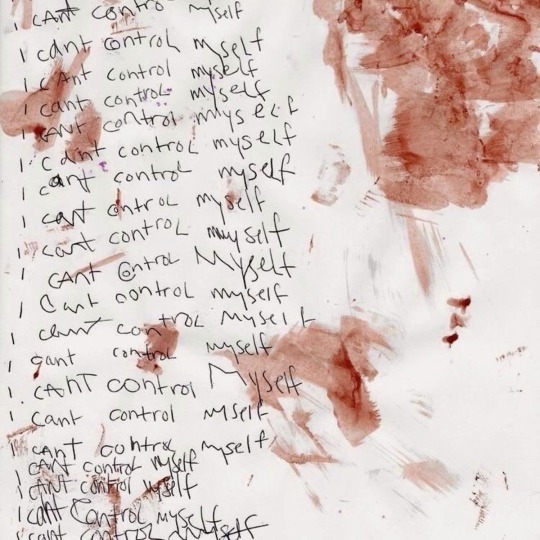 i cAnt control myself
i cant control myself
i cAnt control myself
i cant control myself
i cANt control myself
i cant control myself
i cant control myself
i cant control myself
i cant control myself
i cAnt control Myself
i Cant control myself
i cant control myself
i cant control myself
i cANT control Myself
i cant control Mself
i cANT control myself
i cANT control myself
i cANT control myself
i cant Control myself
i cant control myself